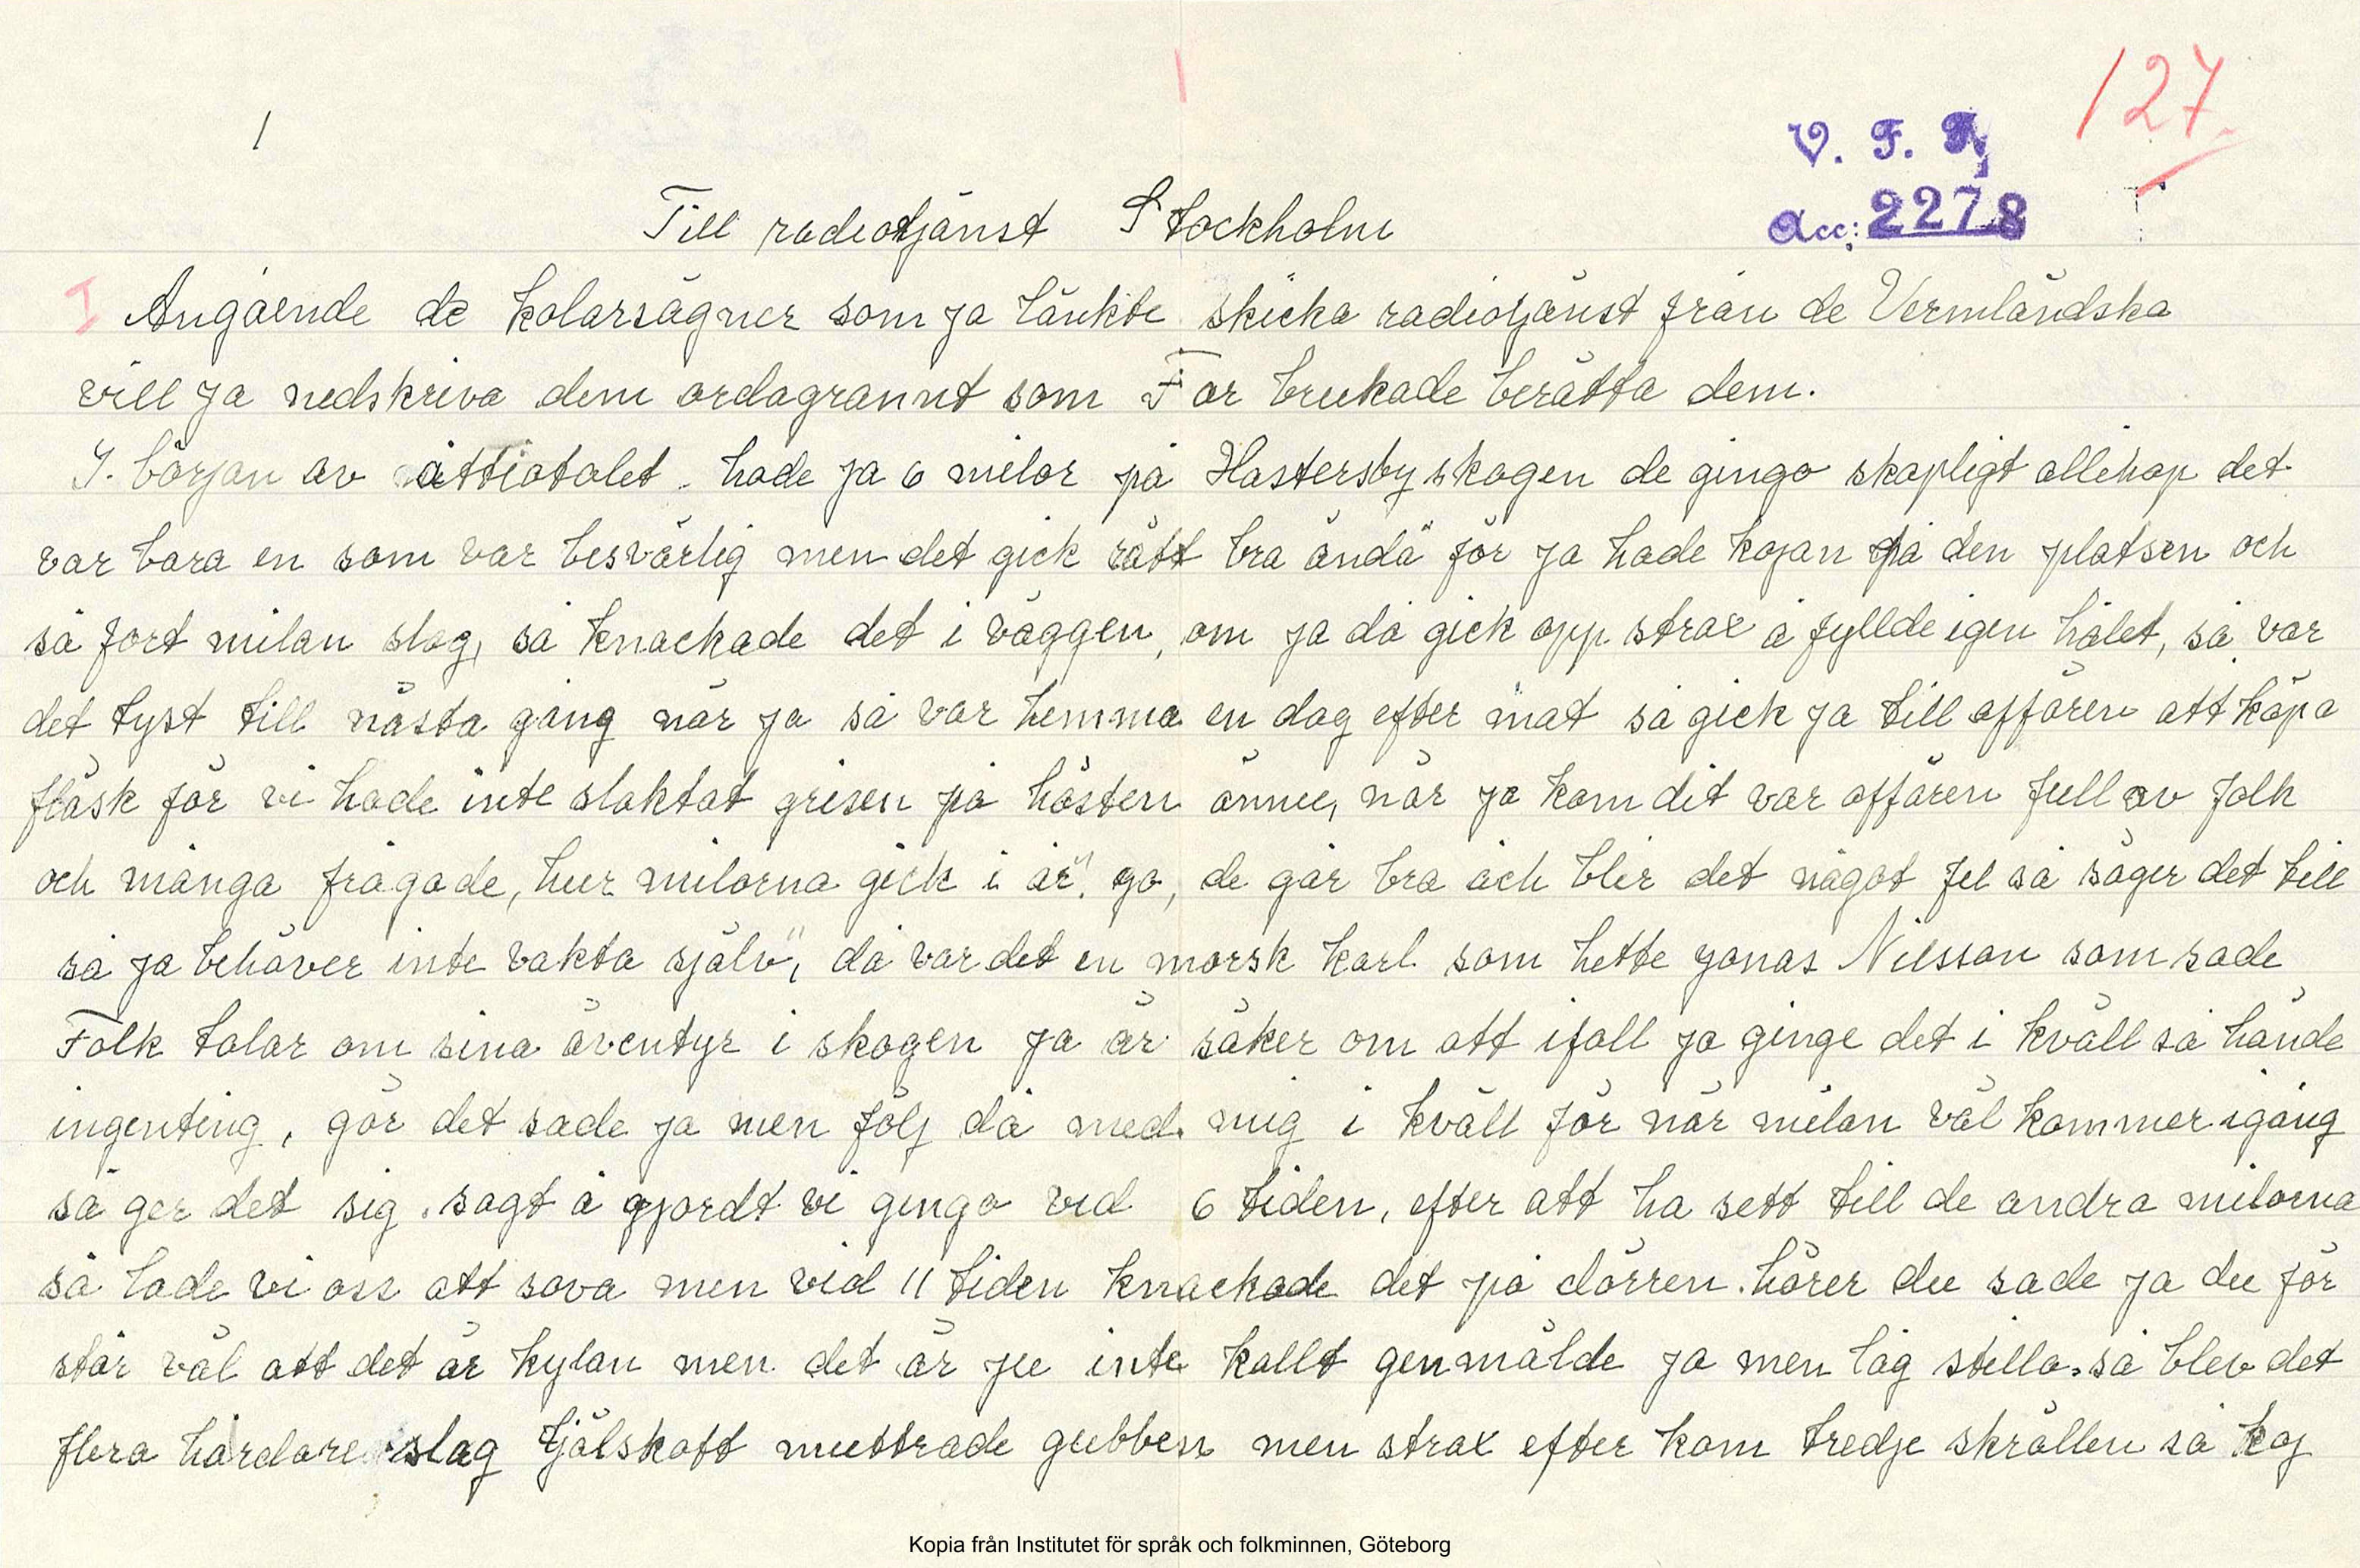 1
127.
V. F. R,
Acc: 2278
Till radiotjänst Stockholm
I Angående de kolarsägner som ja tänkte skicka radiotjänst från de Vermländska
vill ja nedskriva dem ordagrannt som Far brukade berätta dem.
I. början av åttiotalet. hade ja 6 milor på Hastersby skogen de gingo skapligt allihop det
var bara en som var besvärlig men det gick rätt bra ändå för ja hade kojan på den platsen och
så fort milan slog, så knackade det i väggen, om ja då gick opp strax å fyllde igen hålet, så var
det tyst till nästa gång när ja så var hemma en dag efter mat så gick ja till affären att köpa
fläsk för vi hade inte slaktat grisen på hösten ännu, när ja kom dit var affären full av folk
och många frågade, hur milorna gick i år". jo, de går bra och blir det något fel så säger det till
så ja behöver inte vakta själv", då var det en morsk karl som hette Jonas Nilsson som sade
Folk talar om sina äventyr i skogen ja är säker om att ifall ja ginge det i kväll så hände
ingenting, gör det sade ja men följ då med. mig i kväll för när milan väl kommer igång
så ger det sig. sagt å gjordt vi gingo vid 6 tiden, efter att ha sett till de andra milorna
så lade vi oss att sova men vid 11 tiden knackade det på dörren. hörer du sade ja du för
står väl att det är kylan men det är ju inte kallt genmälde ja men låg stilla. så blev det
flera hårdare slag tjälskott muttrade gubben men strax efter kom tredje skrällen så koj
Kopia från Institutet för språk och folkminnen, Göteborg